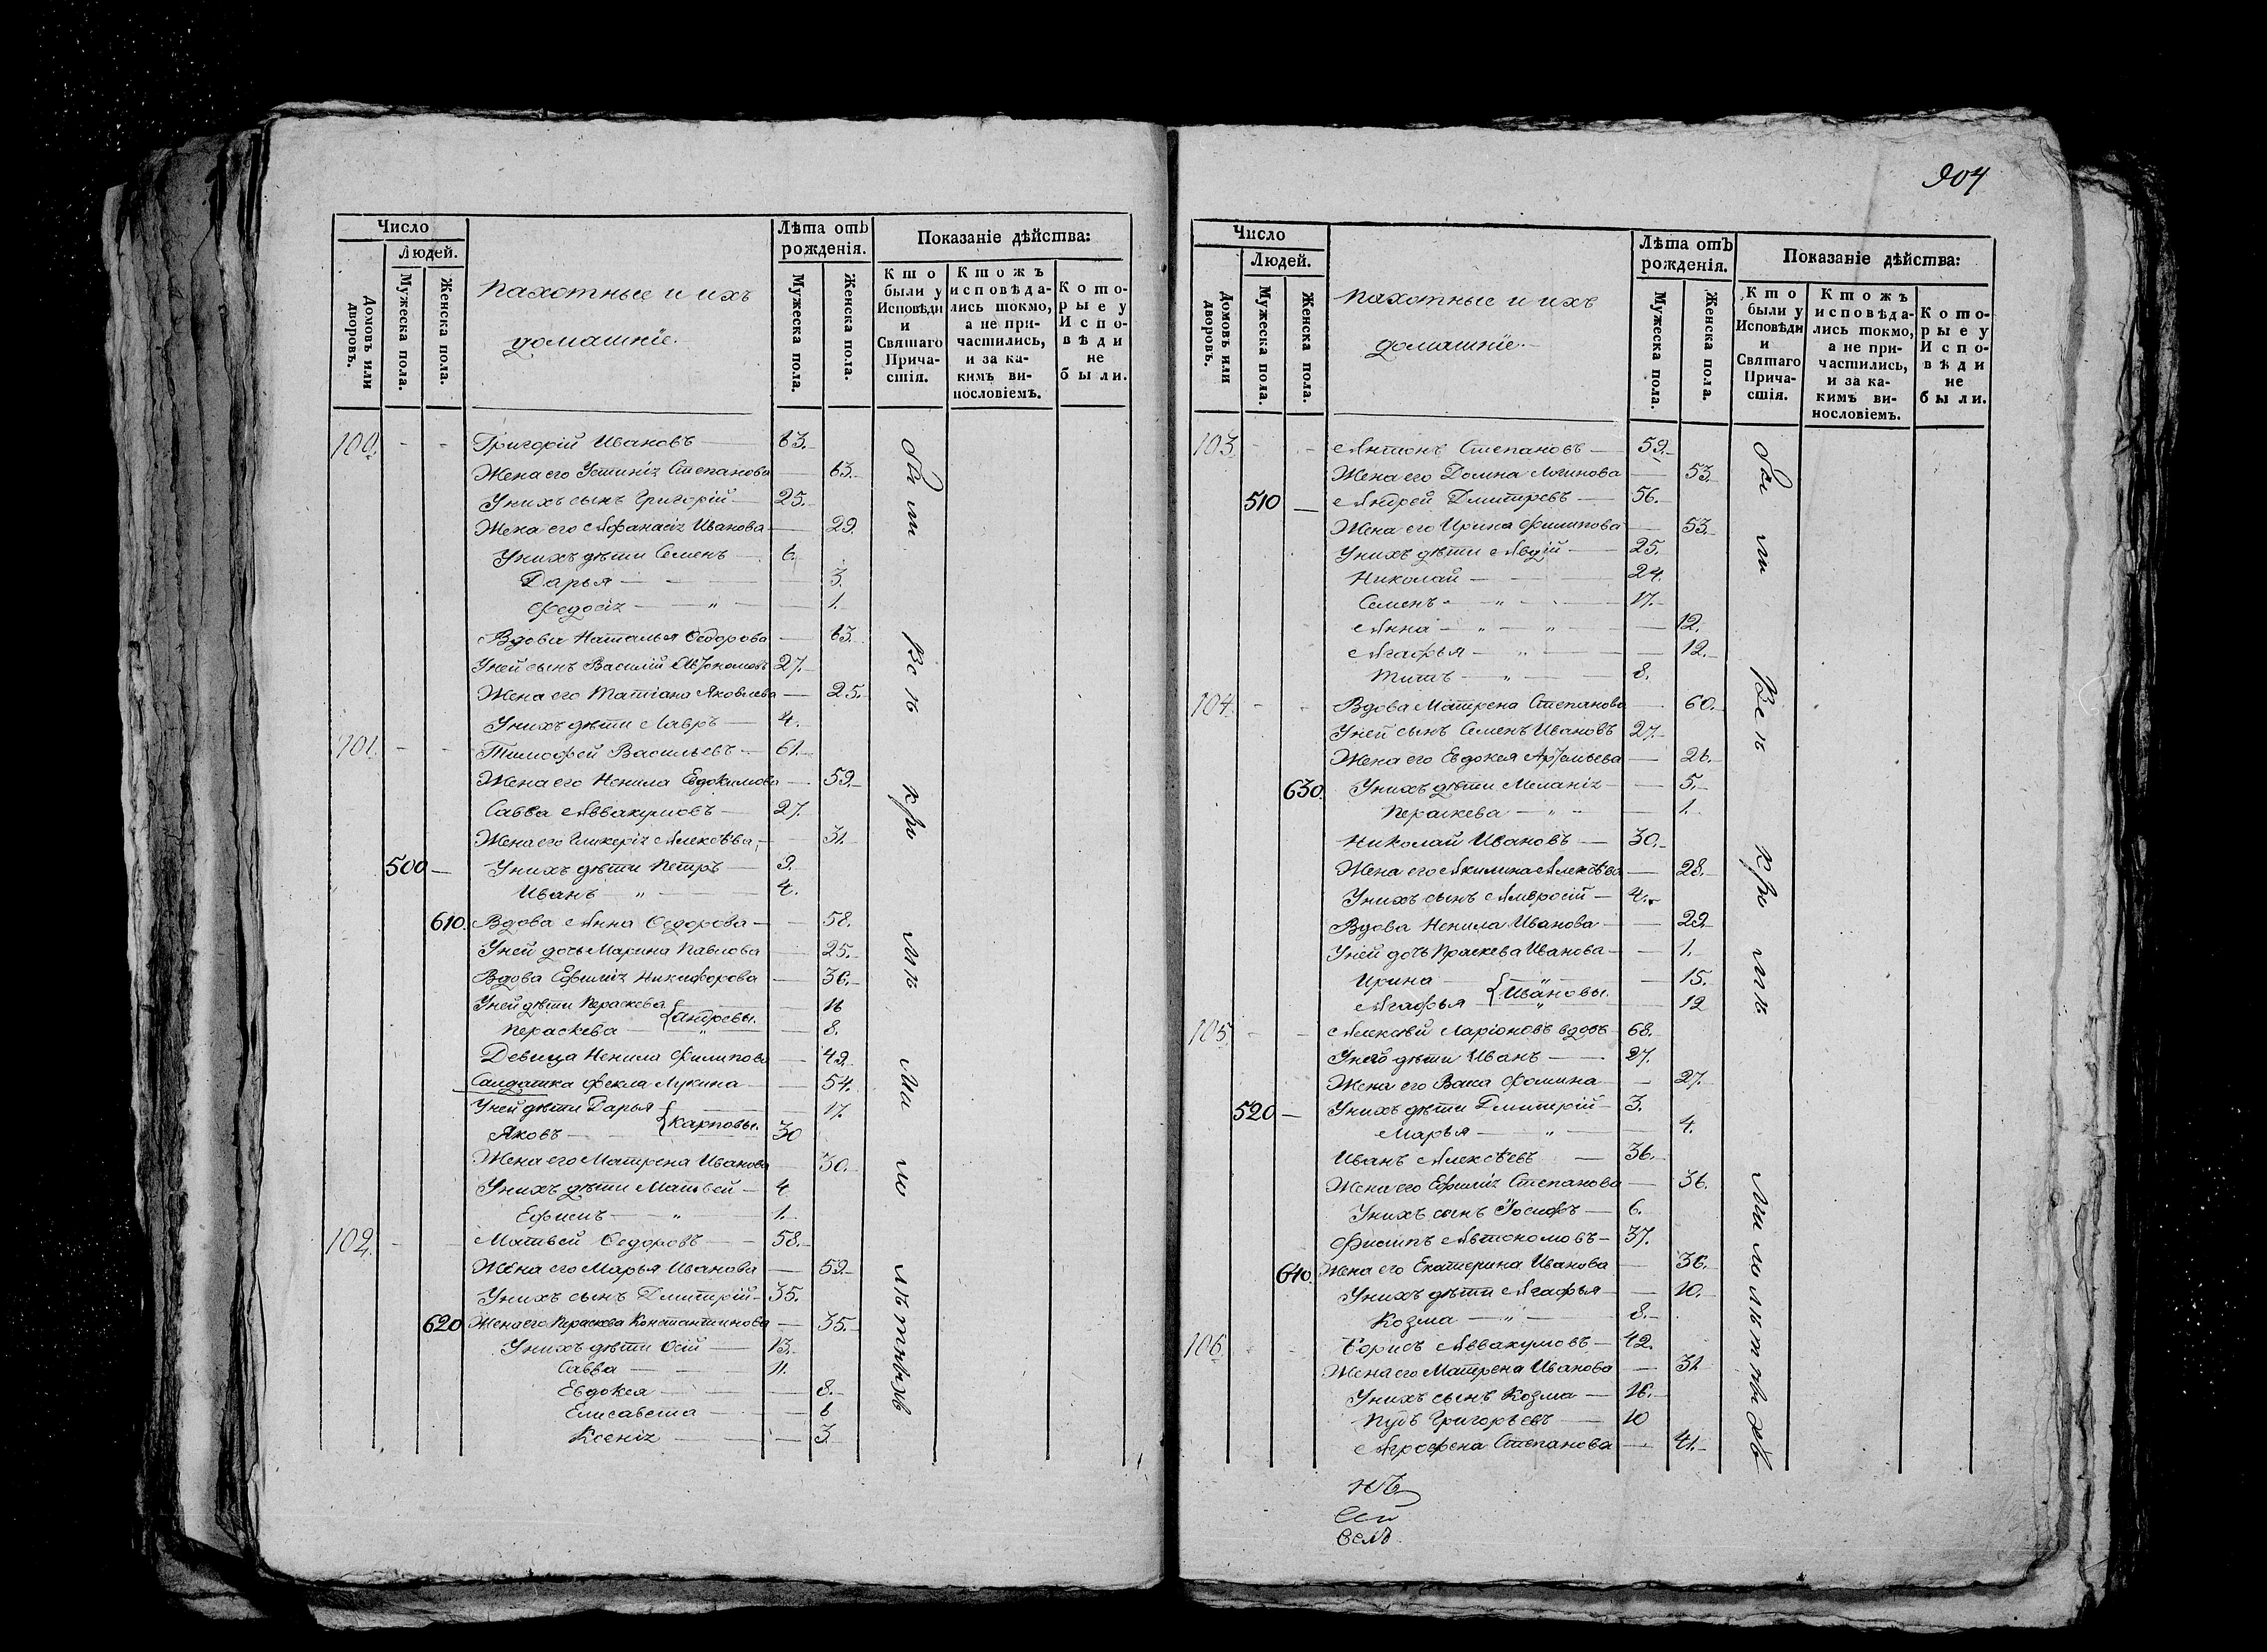 Число
Людей.
Домовъ или дворовъ.
Мужеска пола.
Женска пола.
Пахотные и ихъ
домашніе.
Лѣта отъ
рожденія.
Мужеска пола.
Женска пола.
Показаніе дѣйства:
Кто
были у
Исповѣди
и
Святаго
Прича-
стія.
Ктожъ
исповѣда-
лись токмо,
а не при-
частились,
и за ка-
кимъ ви-
нословіемъ.
Кото-
рые у
Испо-
вѣди
не
были.
100. - - Григорій Ивановъ — 63.
Жена его Устинія Степанова — 63.
У нихъ сынъ Григорій — 25.
Жена его Афанасія Иванова — 29
У нихъ дѣти Семенъ — 6.
Дарья — 3.
Федосія — " — 1.
Вдова Наталья Ѳедорова — 63.
У ней сынъ Василій Автономовъ 27.
Жена его Татіана Яковлева — 25.
У нихъ дѣти Лавръ — 4.
101. - - Тимофей Васильевъ — 61.
Жена его Ненила Евдокимова — 59.
Савва Аввакумовъ — 27.
Жена его Гликерія Алексѣва — 31.
500 — У нихъ дѣти Петръ — 9.
Иванъ — " — 4.
610. Вдова Анна Ѳедорова — 58.
У ней дочь Марина Павлова — 25.
Вдова Ефимія Никифорова — 36.
У ней дѣти Параскева — 16
{Андревы.
Параскева — " — 8.
Девица Ненила Филипова — 49.
Салдатка Фекла Лукина — 54.
У ней дѣти Дарья — 17.
{Карповы.
Яковъ — 30
Жена его Матрена Иванова — 30.
У нихъ дѣти Матвей — 4
Ефимъ — " — 1.
102. - Матвей Ѳедоровъ — 58.
Жена его Марья Иванова — 59.
У нихъ сынъ Дмитрій — 35.
620 Жена его Параскева Константинова — 35.
У нихъ дѣти Осій — 13.
Савва — 11.
Евдокея — 8.
Елисавета — 6
Ксенія — 3
904
Число
Людей.
Домовъ или дворовъ.
Мужеска пола.
Женска пола.
Пахотные и ихъ
домашніе.
Лѣта отъ
рожденія.
Мужеска пола.
Женска пола.
Показаніе дѣйства:
Кто
были у
Исповѣди
и
Святаго
Прича-
стія.
Ктожъ
исповѣда-
лись токмо,
а не при-
частились,
и за ка-
кимъ ви-
нословіемъ.
Кото-
рые у
Испо-
вѣди
не
были.
103. - - Антонъ Степановъ — 59.
Жена его Домна Логинова — 53.
510 — Андрей Дмитревъ — 56.
Жена его Ирина Филипова — 53.
У нихъ дѣти Авдій — 25.
Николай — 24.
Семенъ — " — 17.
Анна — " — " — 12.
Агафья — " — 12.
Титъ — " — 8.
104. - - Вдова Матрена Степанова — 60.
У ней сынъ Семенъ Ивановъ 27.
Жена его Евдокея Артемьева — 26.
630. У нихъ дѣти Меланія — 5.
Параскева — " — 1.
Николай Ивановъ — 30.
Жена его Акилина Алексѣва — 28.
У нихъ сынъ Амвросій — 4.
Вдова Ненила Иванова — 29.
У ней дочь Праскева Иванова — 1.
Ирина — " — 15.
{Ивановы.
Агафья — " — 12
105. - - Алексѣй Ларіоновъ вдовъ — 68.
У него дѣти Иванъ — 27.
Жена его Васа Фомина — 27.
520 — У нихъ дѣти Дмитрій — 3.
Марья — " — 4.
Иванъ Алексѣевъ — 36.
Жена его Ефимія Степанова — 36.
У нихъ сынъ Іосифъ — 6.
Филипъ Автономовъ — 37.
640. Жена его Екатерина Иванова — 36.
У нихъ дѣти Агафья — 10.
Козма — " — 8.
106. - - Борисъ Аввакумовъ — 42.
Жена его Матрена Иванова — 31
У нихъ сынъ Козма — 16.
Пудъ Григорьевъ — 10
Агрофена Степанова — 41.